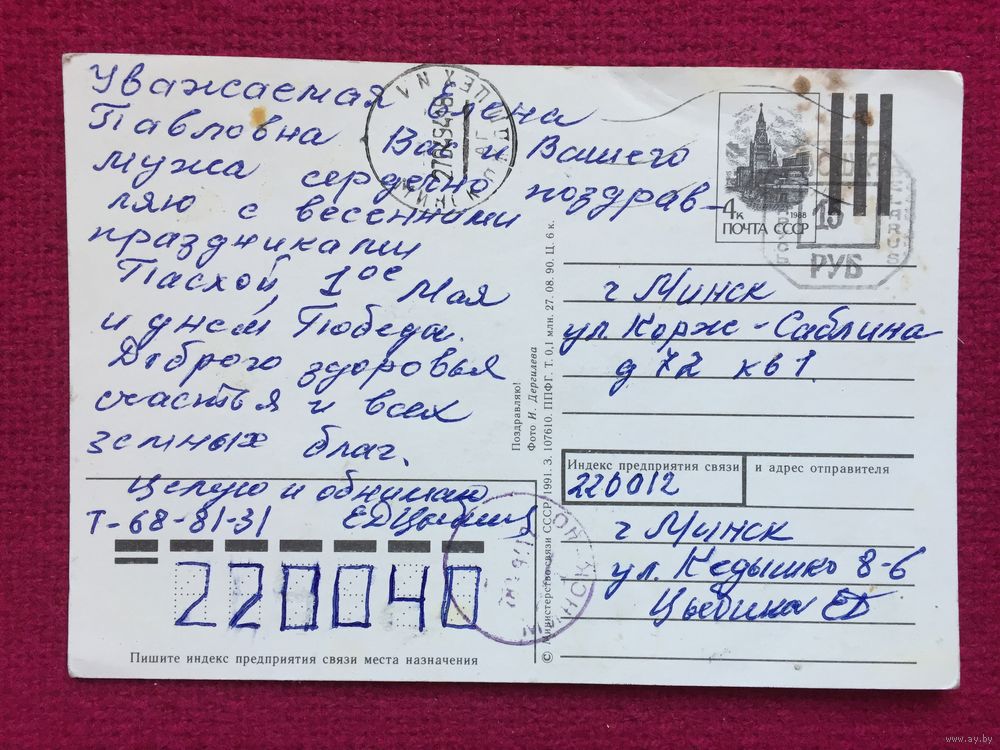 Уважаемая Елена
Павловна Вас и Вашего
мужа сердечно поздрав-
ляю с весенними
праздниками
Пасхой, 1ое Мая
и днем Победы.
Доброго здоровья
счастья и всех
земных благ.
Целую и обнимаю
Т-68-81-31
220040
Пишите индекс предприятия связи места назначения
Поздравляю!
Фото И. Дергилева
© Министерство связи СССР. 1991. З. 107610. ППФГ. Т. 0,1 млн. 27. 08. 90. Ц. 6 к.
4к 1988
ПОЧТА СССР
15
РУБ
BELARUS
г Минск
ул. Корж-Саблина
д 72 кв 1
Индекс предприятия связи
и адрес отправителя
220012
г Минск
ул. Кедышко 8-6
Цыбина ЕД
www.ay.by